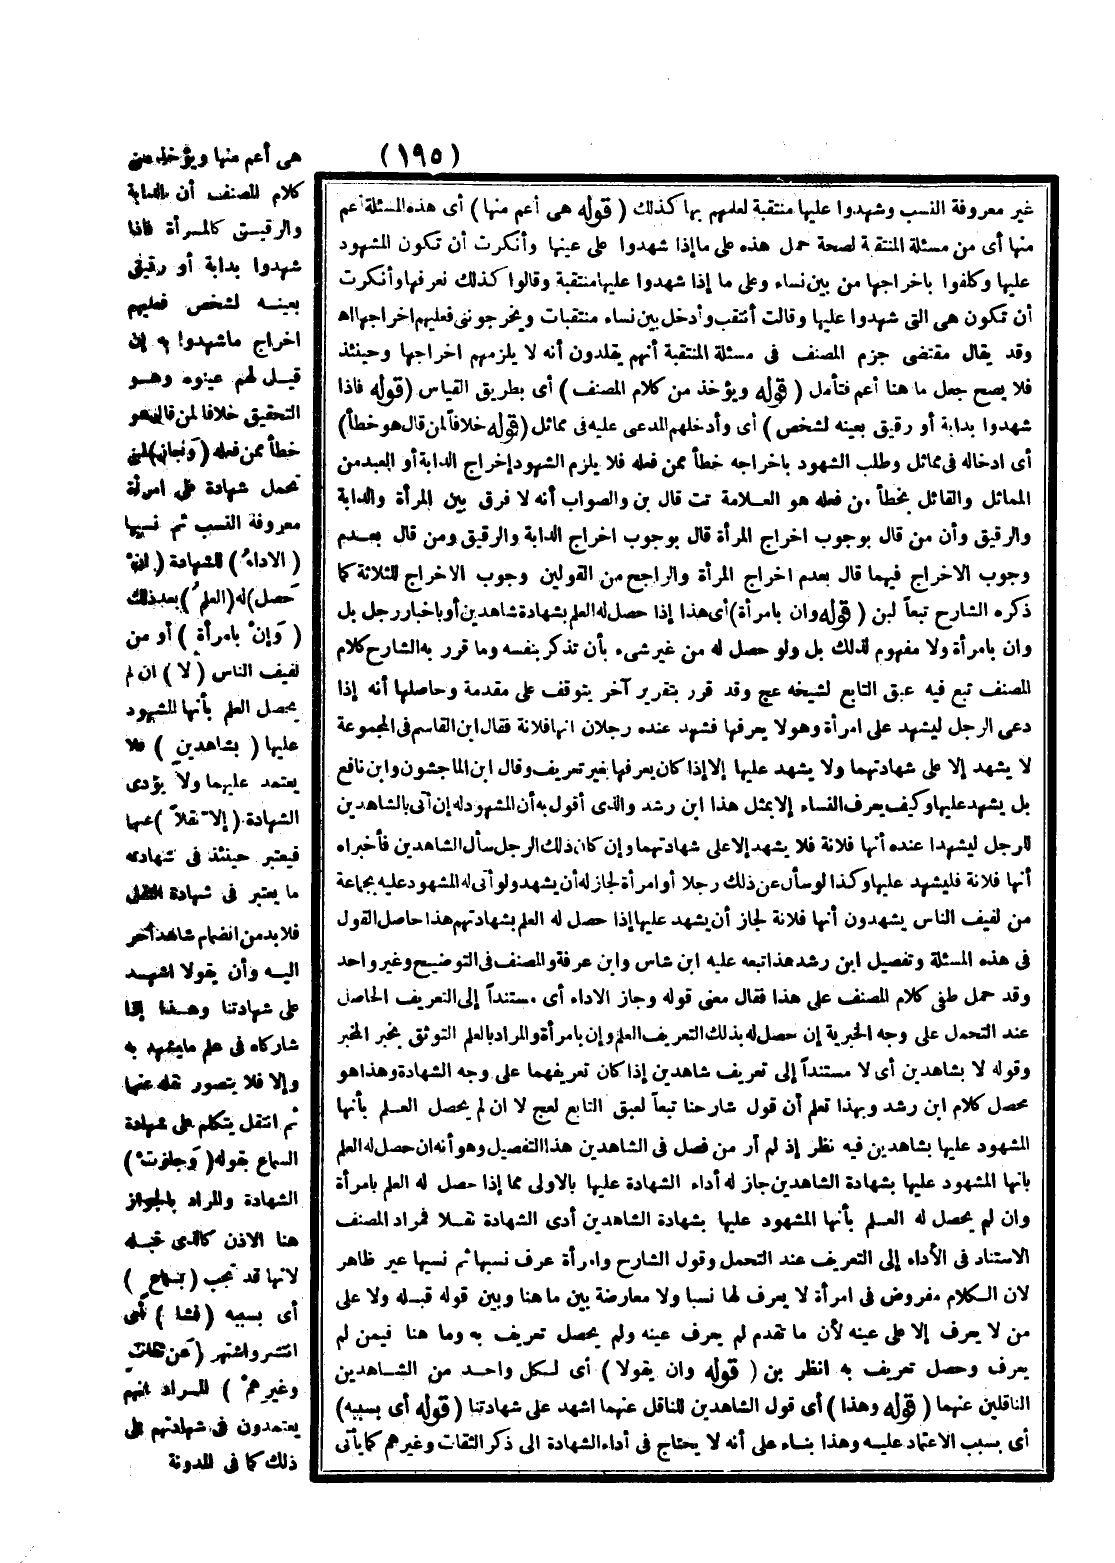 (١٩٥)
غير معروفة النسب وشهدوا عليها منتقبة لعلمهم بها كذلك ( قوله هى أعم منها ) أى هذه المسئلة أعم
منها أى من مسئلة المنتقبة لصحة حمل هذه على ما إذا شهدوا على عينها وأنكرت أن تكون المشهود
عليها وكلفوا باخراجها من بين نساء وعلى ما إذا شهدوا عليها منتقبة وقالوا كذلك نعرفها وأنكرت
أن تكون هى التى شهدوا عليها وقالت أنتقب وأدخل بين نساء منتقبات ويخرجونى فعليهم اخراجها اه
وقد يقال مقتضى جزم المصنف فى مسئلة المنتقبة أنهم يقلدون أنه لا يلزمهم اخراجها وحينئذ
فلا يصح جعل ما هنا أعم فتأمل ( قوله ويؤخذ من كلام المصنف ) أى بطريق القياس (قوله فاذا
شهدوا بدابة أو رقيق بعينه لشخص ) أى وأدخلهم المدعى عليه فى مماثل (قوله خلافاً لمن قال هو خطأ)
أى ادخاله فى مماثل وطلب الشهود باخراجه خطأ ممن فعله فلا يلزم الشهود إخراج الدابة أو العبد من
المماثل والقائل بخطأ من فعله هو العلامة تت قال بن والصواب أنه لا فرق بين المرأة والدابة
والرقيق وأن من قال بوجوب اخراج المرأة قال بوجوب اخراج الدابة والرقيق ومن قال بعدم
وجوب الاخراج فيهما قال بعدم اخراج المرأة والراجح من القولين وجوب الاخراج للثلاثة كما
ذكره الشارح تبعاً لبن ( قوله وان بامرأة ) أى هذا إذا حصل له العلم بشهادة شاهدين أو باخبار رجل بل
وان بامرأة ولا مفهوم لذلك بل ولو حصل له من غير شىء بأن تذكر بنفسه وما قرر به الشارح كلام
المصنف تبع فيه عبق التابع لشيخه عج وقد قرر بتقرير آخر يتوقف على مقدمة وحاصلها أنه إذا
دعى الرجل ليشهد على امرأة وهو لا يعرفها فشهد عنده رجلان انها فلانة فقال ابن القاسم فى المجموعة
لا يشهد إلا على شهادتهما ولا يشهد عليها إلا إذا كان يعرفها بغير تعريف وقال ابن الماجشون وابن نافع
بل يشهد عليها وكيف يعرف النساء إلا بمثل هذا ابن رشد والذى أقول به أن المشهود له إن أتى بالشاهدين
للرجل ليشهدا عنده أنها فلانة فلا يشهد إلا على شهادتهما وإن كان ذلك الرجل سأل الشاهدين فأخبراه
أنها فلانة فليشهد عليها وكذا لو سأل عن ذلك رجلا أو امرأة لجاز له أن يشهد ولو أتى له المشهود عليه بجماعة
من لفيف الناس يشهدون أنها فلانة لجاز أن يشهد عليها إذا حصل له العلم بشهادتهم هذا حاصل القول
فى هذه المسئلة وتفصيل ابن رشد هذا تبعه عليه ابن شاس وابن عرفة والمصنف فى التوضيح وغير واحد
وقد حمل طفى كلام المصنف على هذا فقال معنى قوله وجاز الاداء أى مستنداً إلى التعريف الحاصل
عند التحمل على وجه الخبرية إن حصل له بذلك التعريف العلم وإن بامرأة والمراد بالعلم التوثق بخبر المخبر
وقوله لا بشاهدين أى لا مستنداً إلى تعريف شاهدين إذا كان تعريفهما على وجه الشهادة وهذا هو
محصل كلام ابن رشد وبهذا تعلم أن قول شارحنا تبعاً لعبق التابع لعج لا ان لم يحصل العلم بأنها
المشهود عليها بشاهدين فيه نظر إذ لم أر من فصل فى الشاهدين هذا التفصيل وهو أنه ان حصل له العلم
بانها المشهود عليها بشهادة الشاهدين جاز له أداء الشهادة عليها بالاولى مما إذا حصل له العلم بامرأة
وان لم يحصل له العلم بأنها المشهود عليها بشهادة الشاهدين أدى الشهادة نقلا فمراد المصنف
الاستناد فى الأداء إلى التعريف عند التحمل وقول الشارح وامرأة عرف نسبها ثم نسيها غير ظاهر
لان الكلام مفروض فى امرأة لا يعرف لها نسبا ولا معارضة بين ما هنا وبين قوله قبله ولا على
من لا يعرف إلا على عينه لأن ما تقدم لم يعرف عينه ولم يحصل تعريف به وما هنا فيمن لم
يعرف وحصل تعريف به انظر بن ( قوله وان يقولا ) أى لكل واحد من الشاهدين
الناقلين عنهما ( قوله وهذا ) أى قول الشاهدين للناقل عنهما اشهد على شهادتنا ( قوله أى بسببه)
أى بسبب الاعتماد عليه وهذا بناء على أنه لا يحتاج فى أداء الشهادة الى ذكر الثقات وغيرهم كما يأتى
هى أعم منها ويؤخذ من
كلام المصنف أن الدابة
والرقيق كالمرأة فاذا
شهدوا بدابة أو رقيق
بعينه لشخص فعليهم
اخراج ماشهدوا به إن
قيل لهم عينوه وهو
التحقيق خلافا لمن قال هو
خطأ ممن فعله (وَجاز) لمن
تحمل شهادة على امرأة
معروفة النسب ثم نسيها
( الاداءُ ) للشهادة ( انْ
حَصل) له (العلمُ ) بعد ذلك
( وَإنْ بامرأة ) أو من
لفيف الناس (لا ) ان لم
يحصل العلم بأنها المشهود
عليها ( بشاهدينِ ) فلا
يعتمد عليهما ولا يؤدى
الشهادة ( إلا نقلاً ) عنهما
فيعتبر حينئذ فى شهادته
ما يعتبر فى شهادة النقل
فلا بد من انضمام شاهد آخر
اليه وأن يقولا اشهد
على شهادتنا وهذا إذا
شاركاه فى علم ما يشهد به
وإلا فلا يتصور نقله عنهما
ثم انتقل يتكلم على شهادة
السماع بقوله ( وَجازتْ )
الشهادة والمراد بالجواز
هنا الاذن كالذى قبله
لانها قد تجب ( بسماعٍ )
أى بسببه ( فشا ) أى
انتشر واشتهر ( عَن ثقاتٍ
وغيرهمْ ) المراد انهم
يعتمدون فى شهادتهم على
ذلك كما فى المدونة